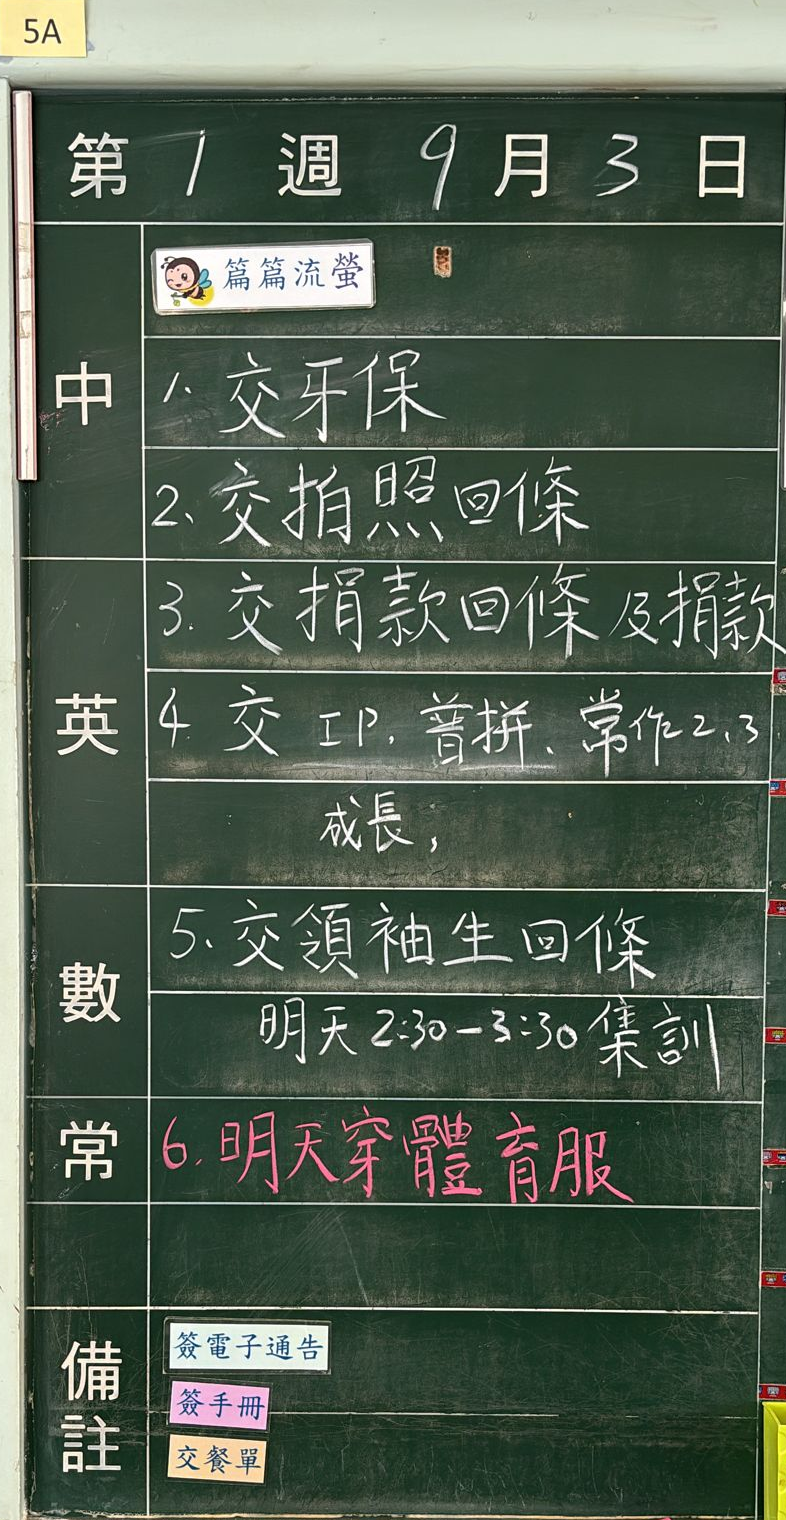 5A
第 1 週 9 月 3 日
篇篇流螢
中
1. 交牙保
2、交拍照回條
3. 交捐款回條及捐款
英
4 交 IP、普拼、常作2、3
成長，
數
5、交領袖生回條
明天2:30-3:30集訓
常
6. 明天穿體育服
備註
簽電子通告
簽手冊
交餐單